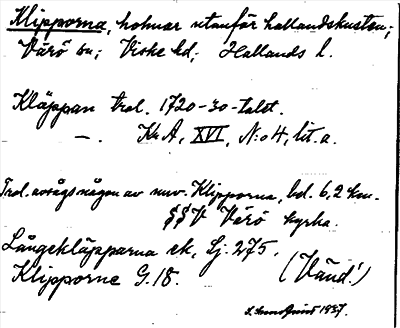 Klipporna, holmar utanför hallandskusten;
Värö sn; Viske hd; Hallands l.
Kläppan trol. 1720-30-talet.
—. Kr.A, XVI, N:o 4, lit. a.
Trol. avsågs någon av nuv. Klipporna, bel. 6,2 km.
V Värö kyrka.
Långekläpparna ek, Sj. 275.
Klipporne G. 18. (Vänd!)
1937.